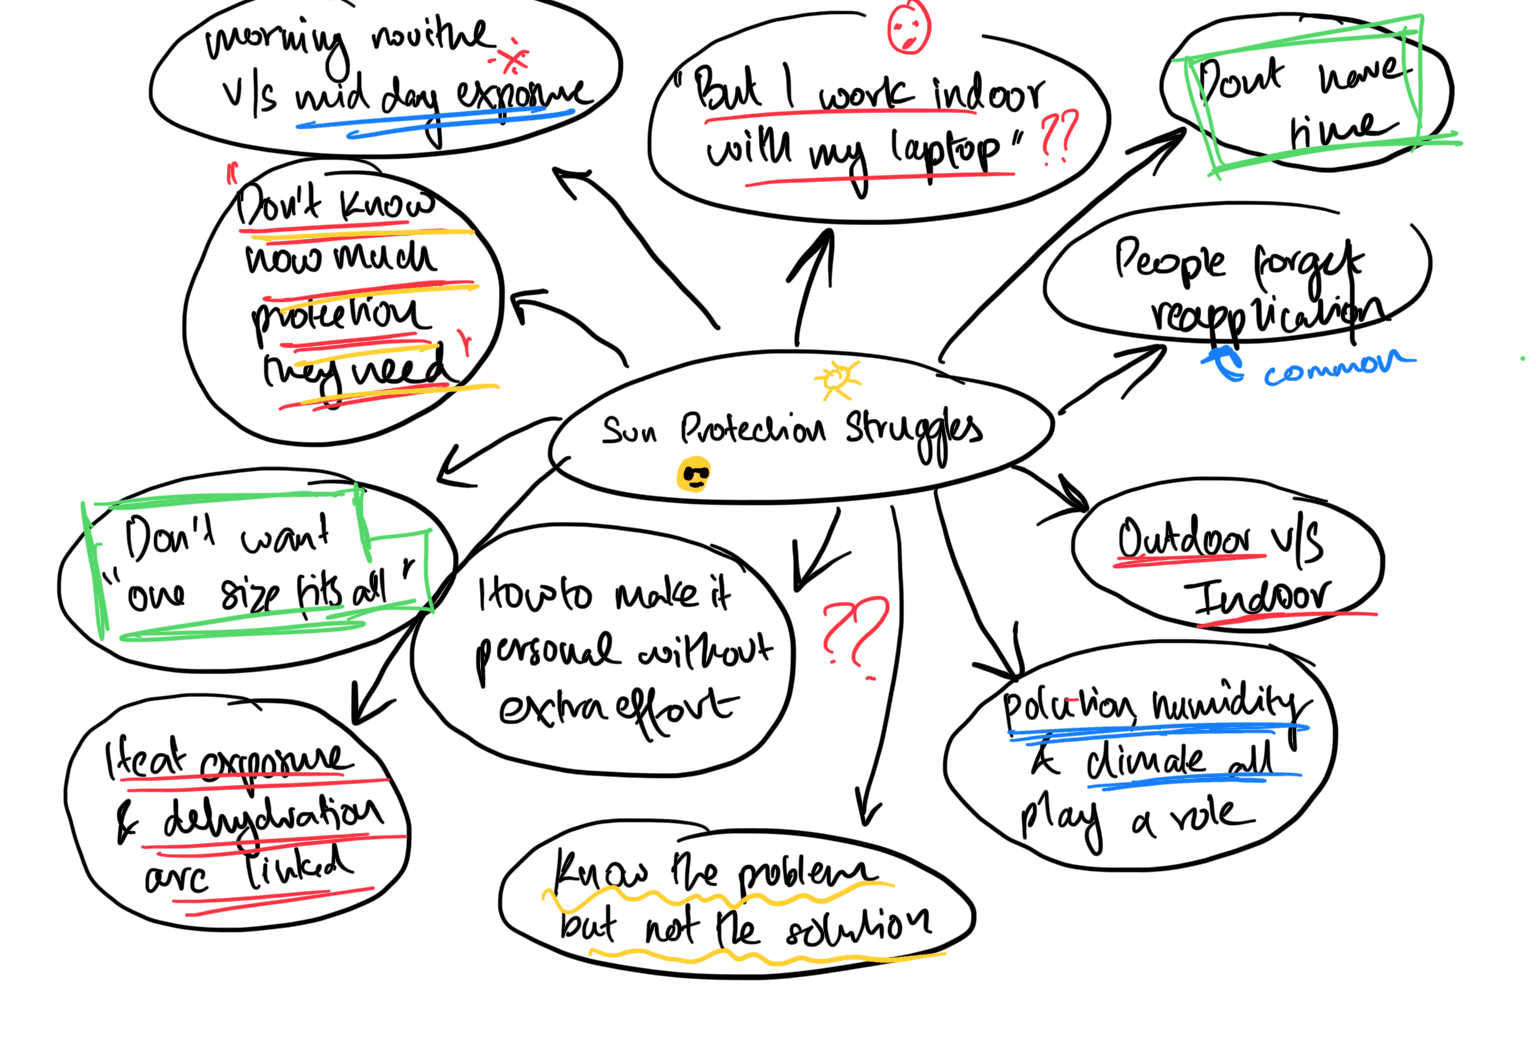 morning routine
v/s mid day exposure
"But I work indoor
with my laptop" ??
Dont have
time
"Don't know
how much
protection
they need"
People forget
reapplication
common
Sun Protection Struggles
Don't want
"one size fits all"
How to make it
personal without
extra effort
??
Outdoor v/s
Indoor
Heat exposure
& dehydration
are linked
polution, humidity
& climate all
play a role
Know the problem
but not the solution